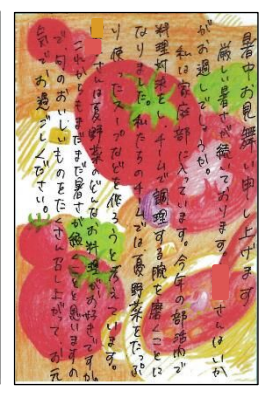 暑中お見舞い申し上げます
厳しい暑さが続いております。さんはいか
がお過しでしょうか。
私は家庭部に入っています。今年の部活内で
料理対決をし、チームで調理する腕を磨くことに
なりました。私たちのチームでは夏野菜をたっぷ
り使ったスープなどを作ろうと考えています。
さんは夏野菜のどんなお料理がお好きですか。
これからもまだまだ暑さが続くことと思いますの
で、旬のおいしいものをたくさん召し上がってお元
気でお過ごしください。